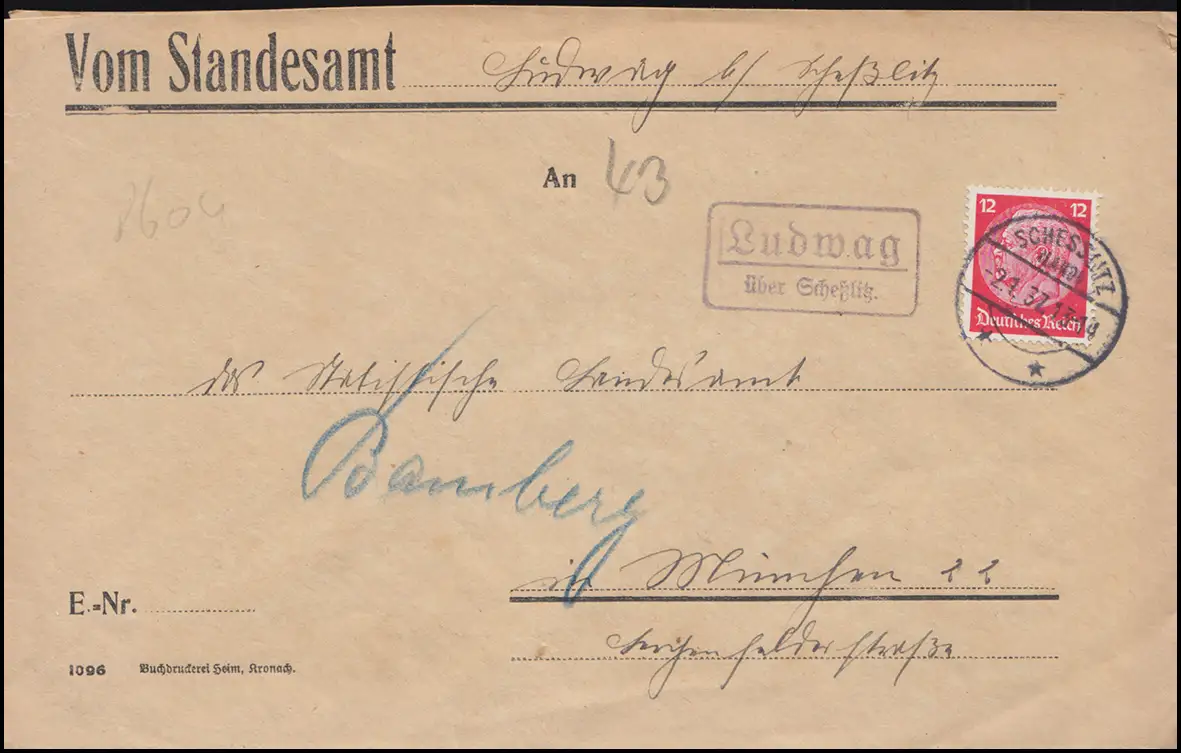 Vom Standesamt Ludwag b/ Scheßlitz
An 43
8604
Ludwag
über Scheßlitz.
12 12
SCHESSLITZ
-2.1.37.17-18
Deutsches Reich
das Statistische Landesamt
Bamberg
in München 22
E.-Nr.
1096 Buchdruckerei Heim, Kronach.